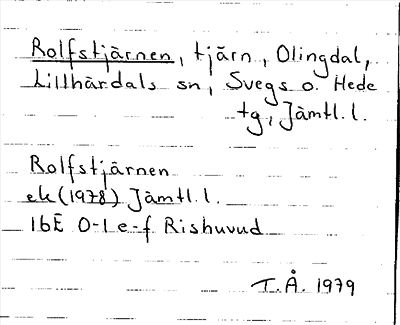 Rolfstjärnen, tjärn, Olingdal,
Lillhärdals sn, Svegs o. Hede
tg, Jämtl. l.
Rolfstjärnen
ek (1978) Jämtl. l.
16E 0-1 e-f Rishuvud
T. Å. 1979